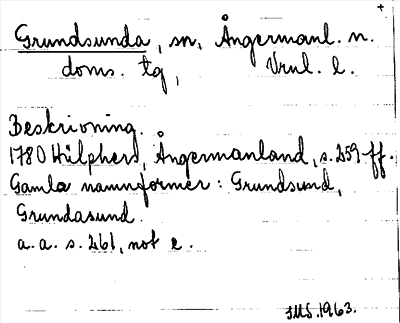 Grundsunda, sn, Ångermanl. n.
doms. tg,
Beskrivning.
1780 Hülphers, Ångermanland, s. 259 ff.
Gamla namnformer: Grundsund,
Grundasund.
a. a. s. 261, not e.
1963.